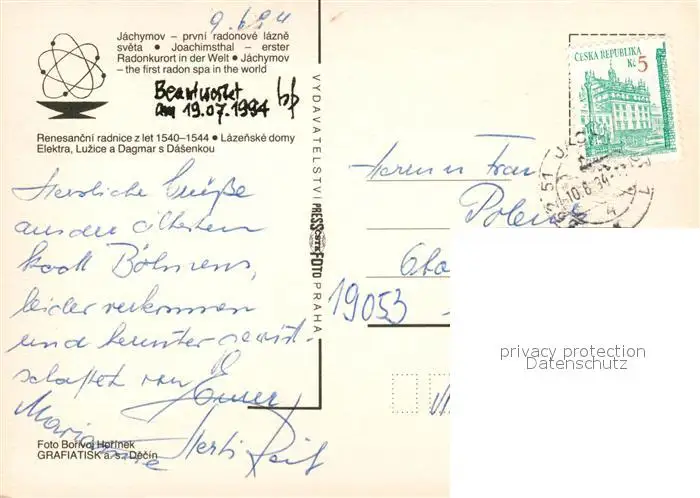 9.6.94
Jáchymov – první radonové lázně
světa • Joachimsthal – erster
Radonkurort in der Welt • Jáchymov
– the first radon spa in the world
Beantwortet
am 19.07.1994
Renesanční radnice z let 1540–1544 • Lázeňské domy
Elektra, Lužice a Dagmar s Dášenkou
Herzliche Grüße
aus der ältesten
Stadt Böhmens,
leider verkommen
und herunter gewirt-
schaftet von
Marianne Herti
Foto Bořivoj Hořínek
GRAFIATISK a. s., Děčín
VYDAVATELSTVÍ PRESSFOTO PRAHA
ČSTK
ČESKÁ REPUBLIKA
Kč 5
10.6.94
Herrn u Frau
19053
privacy protection
Datenschutz